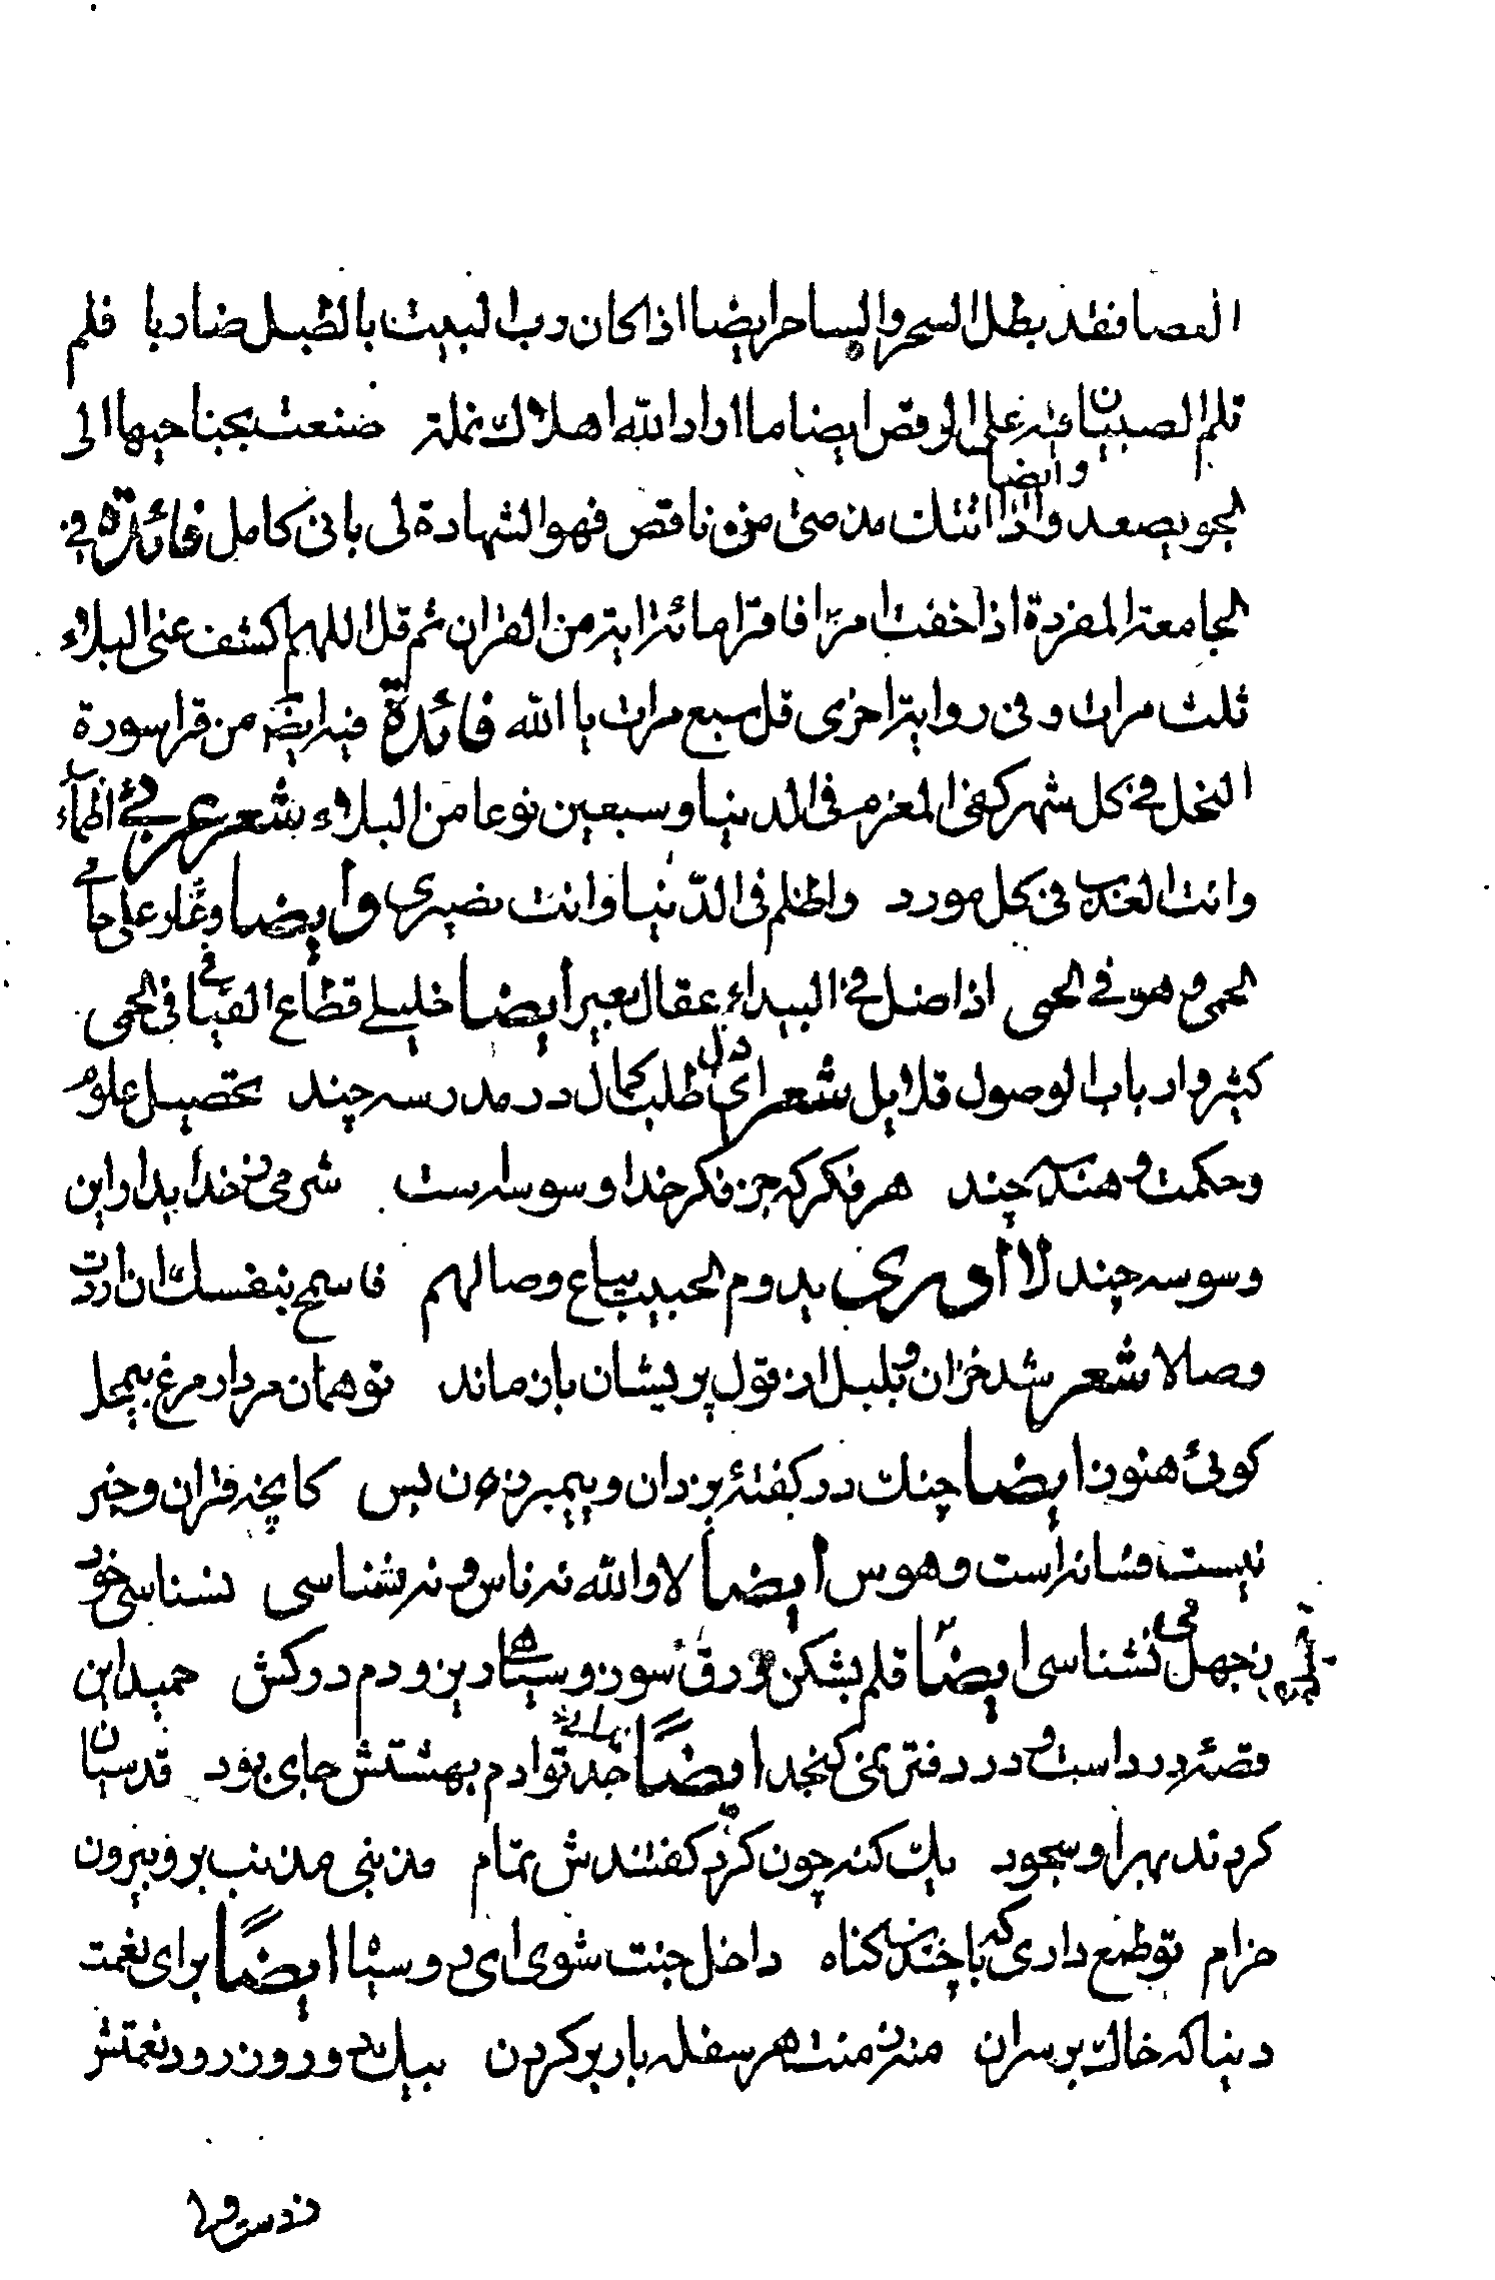 العصا فقد بطل السحر والساحر ایضا اذا کان رب البیت بالطبل ضاربا فلم
تلم الصبیان فیه علی الرقص ایضا ما اراد الله اهلاک نملة صنعت بجناحیها الی
الجو یصعد وایضا واذا اتتک مذمتی من ناقص فهو الشهادة لی بانی کامل فائدة فی
الجامعة المفردة اذا خفت امرا فاقرا مائة ایة من القران ثم قل اللهم اکشف عنی البلاء
ثلث مرات وفی روایة اخری قل سبع مرات یا الله فائدة فیه ایضا من قرا سورة
النحل فی کل شهر کفی المغرم فی الدنیا وسبعین نوعا من البلاء شعر عربی أاظماء
وانت العذب فی کل مورد واظلم فی الدنیا وانت نصیری وایضا وعار علی حامی
الحمی وهو فی الحمی اذا ضل فی البیداء عقال بعیر ایضا خلیلی قطاع الفیافی الی الحمی
کثیر وارباب الوصول قلایل شعر ای دل طلب کمال در مدرسه چند تحصیل علوم
وحکمت وهندسه چند هر فکر که جز فکر خدا وسوسه است شرمی ز خدا بدار این
وسوسه چند لا ادری یدوم الحبیب یباع وصالهم فاسمح بنفسک ان اردت
وصالا شعر شد خزان و بلبل از قول پریشان باز ماند تو همان مردار مرغ بیمحل
کوئی هنوز ایضا چنک در کفتهٔ یزدان و پیمبر زن و بس کانچه قران و خبر
نیست فسانه است و هوس ایضا لا والله نه ناس و نه نشناسی نشناسی خود
ز جهل می نشناسی ایضا قلم بشکن ورق سوز و سیاهی ریز و دم در کش حمید این
قصهٔ درد است و در دفتر نمی کنجد ایضا جد تو ادم بهشتش جای بود قدسیان
کردند بهر او سجود یک کنه چون کرد کفتندش تمام مذنبی مذنب برو بیرون
خرام تو طمع داری که با چندین کناه داخل جنت شوی ای رو سیاه ایضا برای نعمت
دنیا که خاک بر سر ان منه ز منت هر سفله بار بر کردن بیک دو روز رود نعمتش
ز دست ولی